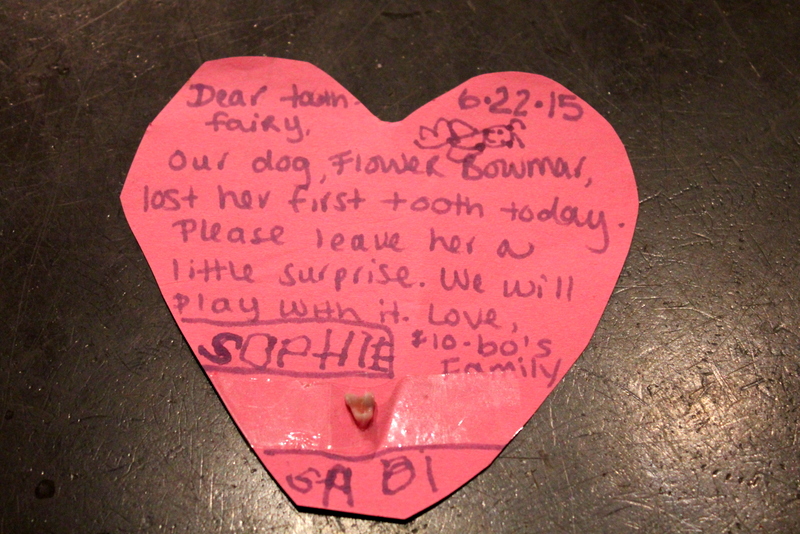 Dear tooth-
6.22.15
fairy,
Our dog, Flower Bowmar,
lost her first tooth today.
Please leave her a
little surprise. We will
play with it. Love,
SOPHIE
$10-bo's
Family
GABI